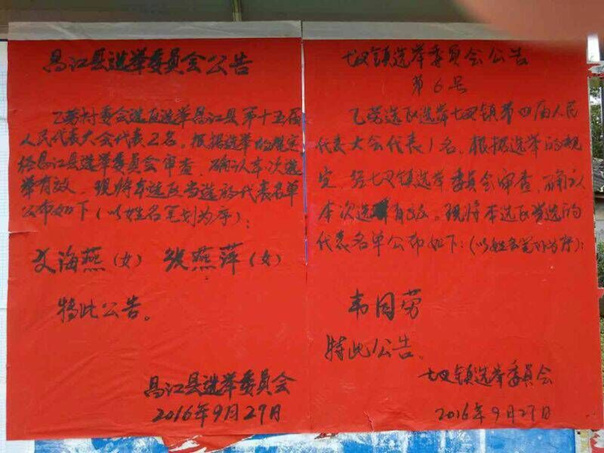 昌江县选举委员会公告
乙劳村委会选区选举昌江县第十五届
人民代表大会代表2名。根据选举的规定
经昌江县选举委员会审查,确认本次选
举有效。现将本选区当选的代表名单
公布如下(以姓名笔划为序):
文海燕(女) 张燕萍(女)
特此公告。
昌江县选举委员会
2016年9月29日
七叉镇选举委员会公告
第6号
乙劳选区选举七叉镇第四届人民
代表大会代表1名。根据选举的规
定 经七叉镇选举委员会审查,确认
本次选举有效。现将本选区当选的
代表名单公布如下:(以姓名笔划为序):
韦国劳
特此公告
七叉镇选举委员会
2016年9月29日